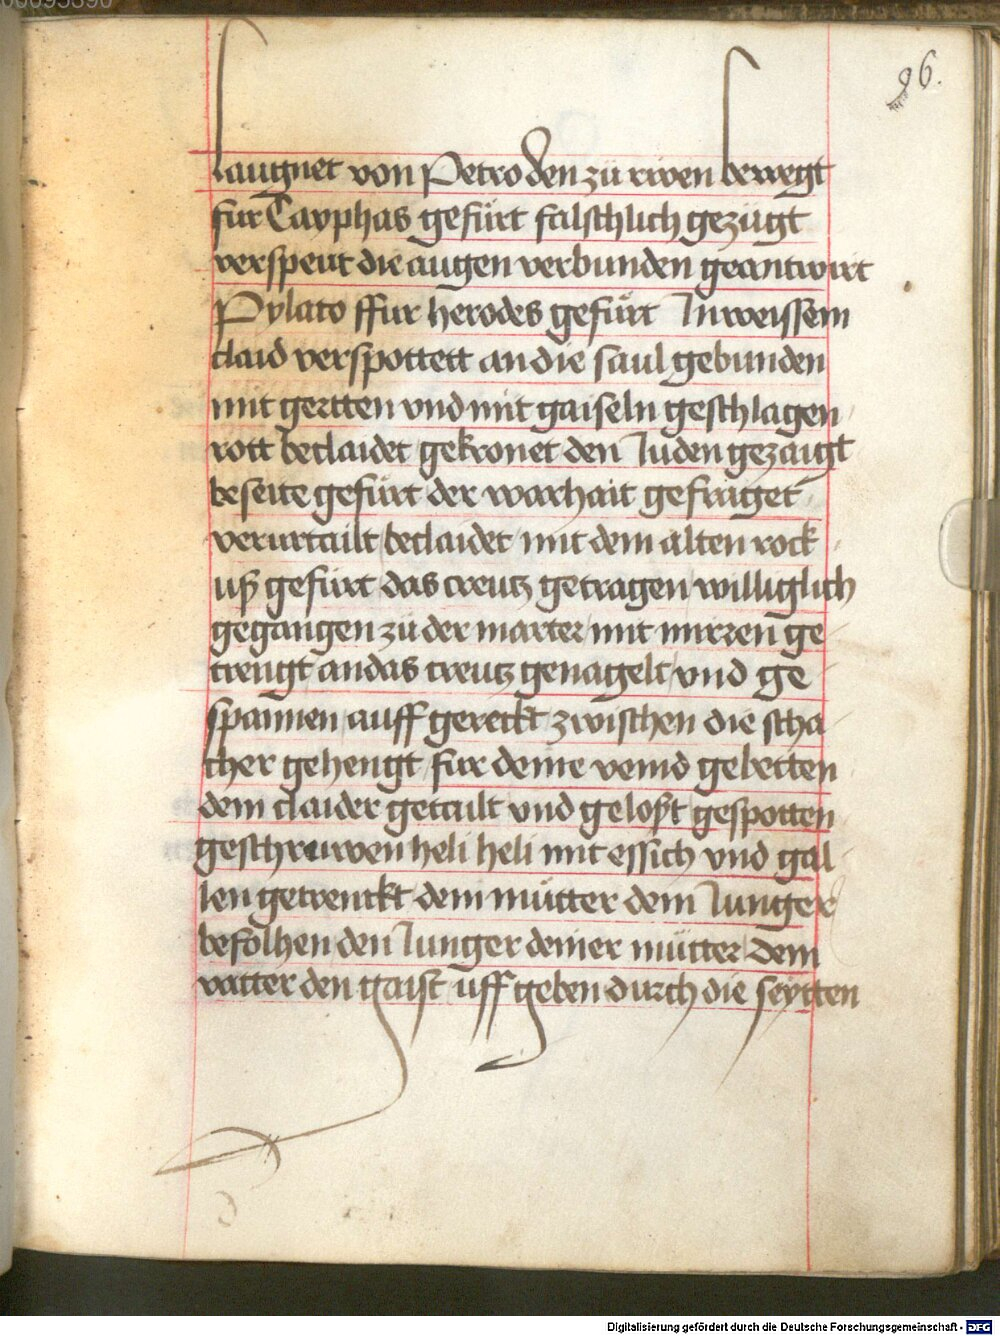 00095390
96.
laugnet von Petro den zü riwen bewegt
für Cayphas gefürt falschlich gezügt
verspeut die augen verbunden geantwirt
Pylato ffur herodes gefürt Jn weissem
claid verspottett an die saul gebunden
mit gertten vnd mit gaiseln geschlagen
rott beclaidet gekronet den Juden gezaigt
beseite gefürt der warhait gefraget
verurtailt beclaidet mit dem alten rock
uß gefürt das creutz getragen williglich
gegangen zü der marter mit mirren ge
trengt an das creutz genagelt vnd ge
spannen auff gereckt zwischen die scha
cher gehengt für deine veind gebetten
dein claider getailt vnd geloßt gespotten
geschruwen heli heli mit essich vnd gal
len getrenckt dein mütter dem Junger
befolhen den Junger deiner mütter dem
vatter den gaist uff geben durch die seytten
Digitalisierung gefördert durch die Deutsche Forschungsgemeinschaft - DFG